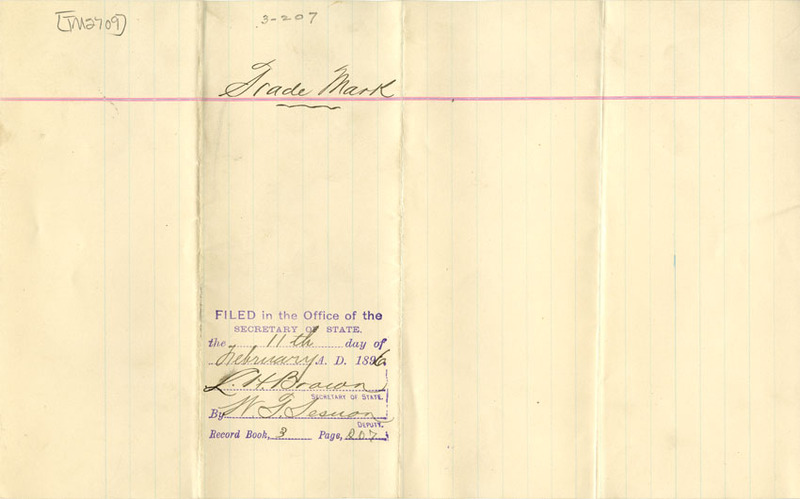 [TM2709]
3-207
Trade Mark
FILED in the Office of the
SECRETARY OF STATE.
the 11th day of
February A. D. 1896
L. H. Brown
SECRETARY OF STATE.
By W. T. Sesnon
DEPUTY.
Record Book, 3 Page, 207